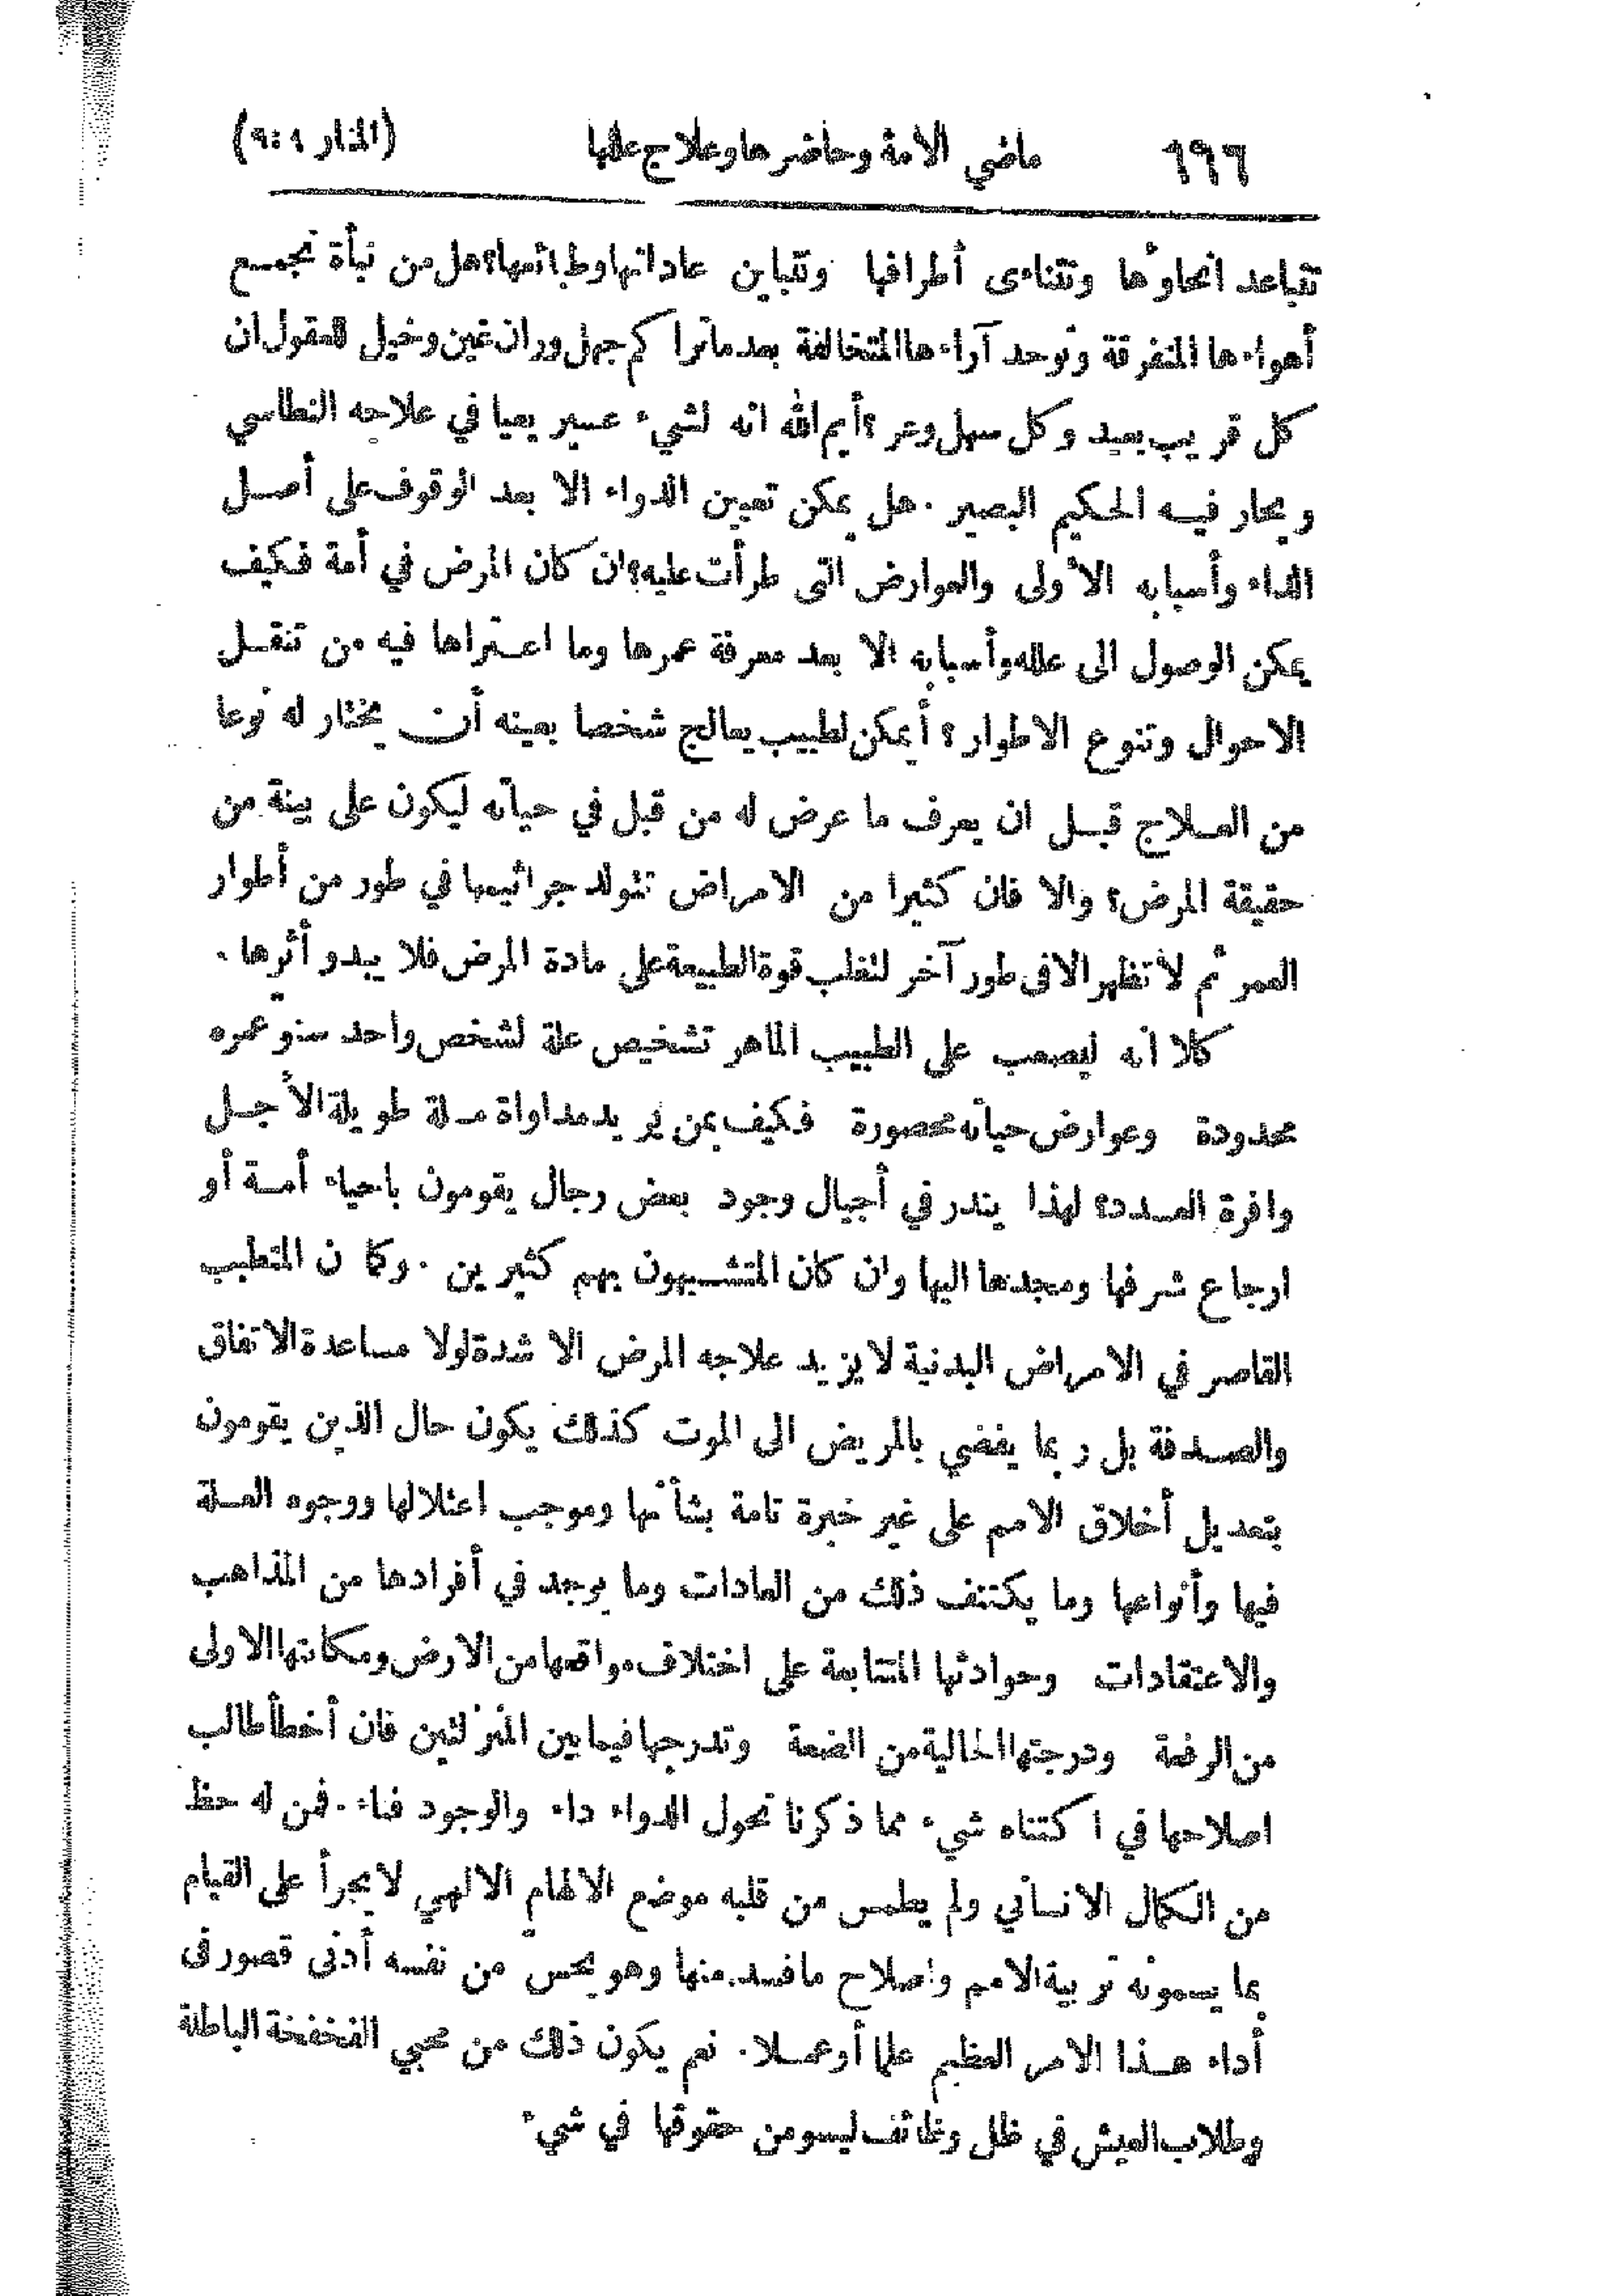 ٦٩٦ ماضي الامة وحاضرها وعلاج عللها (المنار ٩:٩)
تتباعد انحاؤها وتتناءى أطرافها وتتباين عاداتها وطبائعها؟ هل من نبأة تجمع
أهواءها المتفرقة وتوحد آراءها المتخالفة بعد ما تراكم جهل وران غين وخيل للعقول ان
كل قريب بعيد وكل سهل وعر؟ أيم الله انه لشيء عسير يعيا في علاجه النطاسي
ويحار فيه الحكيم البصير . هل يمكن تعيين الدواء الا بعد الوقوف على أصل
الداء وأسبابه الأولى والعوارض التى طرأت عليه؟ ان كان المرض في أمة فكيف
يمكن الوصول الى علله وأسبابه الا بعد معرفة عمرها وما اعتراها فيه من تنقل
الاحوال وتنوع الاطوار؟ أيمكن لطبيب يعالج شخصا بعينه أن يختار له نوعا
من العلاج قبل ان يعرف ما عرض له من قبل في حياته ليكون على بينة من
حقيقة المرض؟ والا فان كثيرا من الامراض تتولد جراثيمها في طور من أطوار
العمر ثم لا تظهر الا فى طور آخر لتغلب قوة الطبيعة على مادة المرض فلا يبدو أثرها .
كلا انه ليصعب على الطبيب الماهر تشخيص علة لشخص واحد سنو عمره
محدودة وعوارض حياته محصورة فكيف بمن يريد مداواة ملة طويلة الأجل
وافرة العدد؟ لهذا يندر في أجيال وجود بعض رجال يقومون باحياء أمة أو
ارجاع شرفها ومجدها اليها وان كان المتشبهون بهم كثيرين . وكما ن المتطبب
القاصر في الامراض البدنية لا يزيد علاجه المرض الا شدة لولا مساعدة الاتفاق
والصدفة بل ربما يفضي بالمريض الى الموت كذلك يكون حال الذين يقومون
بتعديل أخلاق الامم على غير خبرة تامة بشأنها وموجب اعتلالها ووجوه العلة
فيها وأنواعها وما يكتنف ذلك من العادات وما يوجد في أفرادها من المذاهب
والاعتقادات وحوادثها المتتابعة على اختلاف مواقعها من الارض ومكانتها الاولى
من الرفعة ودرجتها الحالية من الضعة وتدرجها فيما بين المنزلتين فان أخطأ طالب
اصلاحها في اكتناه شيء مما ذكرنا تحول الدواء داء والوجود فناء . فمن له حظ
من الكمال الانساني ولم يطمس من قلبه موضع الالهام الالهي لا يجرأ على القيام
بما يسمونه تربية الامم واصلاح ما فسد منها وهو يحس من نفسه أدنى قصور فى
أداء هذا الامر العظيم علما أو عملا . نعم يكون ذلك من محبي الفخفخة الباطلة
وطلاب العيش في ظل وظائف ليسو من حقوقها في شيء